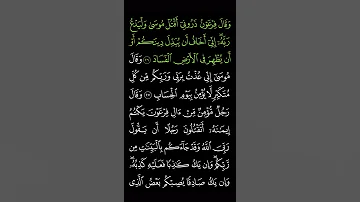 وَقَالَ فِرْعَوْنُ ذَرُونِىٓ أَقْتُلْ مُوسَىٰ وَلْيَدْعُ
رَبَّهُۥٓ ۖ إِنِّىٓ أَخَافُ أَن يُبَدِّلَ دِينَكُمْ أَوْ
أَن يُظْهِرَ فِى ٱلْأَرْضِ ٱلْفَسَادَ ۝٢٦ وَقَالَ
مُوسَىٰٓ إِنِّى عُذْتُ بِرَبِّى وَرَبِّكُم مِّن كُلِّ
مُتَكَبِّرٍ لَّا يُؤْمِنُ بِيَوْمِ ٱلْحِسَابِ ۝٢٧ وَقَالَ
رَجُلٌ مُّؤْمِنٌ مِّنْ ءَالِ فِرْعَوْنَ يَكْتُمُ
إِيمَـٰنَهُۥٓ أَتَقْتُلُونَ رَجُلًا أَن يَقُولَ
رَبِّىَ ٱللَّهُ وَقَدْ جَآءَكُم بِٱلْبَيِّنَـٰتِ مِن
رَّبِّكُمْ ۖ وَإِن يَكُ كَـٰذِبًا فَعَلَيْهِ كَذِبُهُۥ ۖ
وَإِن يَكُ صَادِقًا يُصِبْكُم بَعْضُ ٱلَّذِى